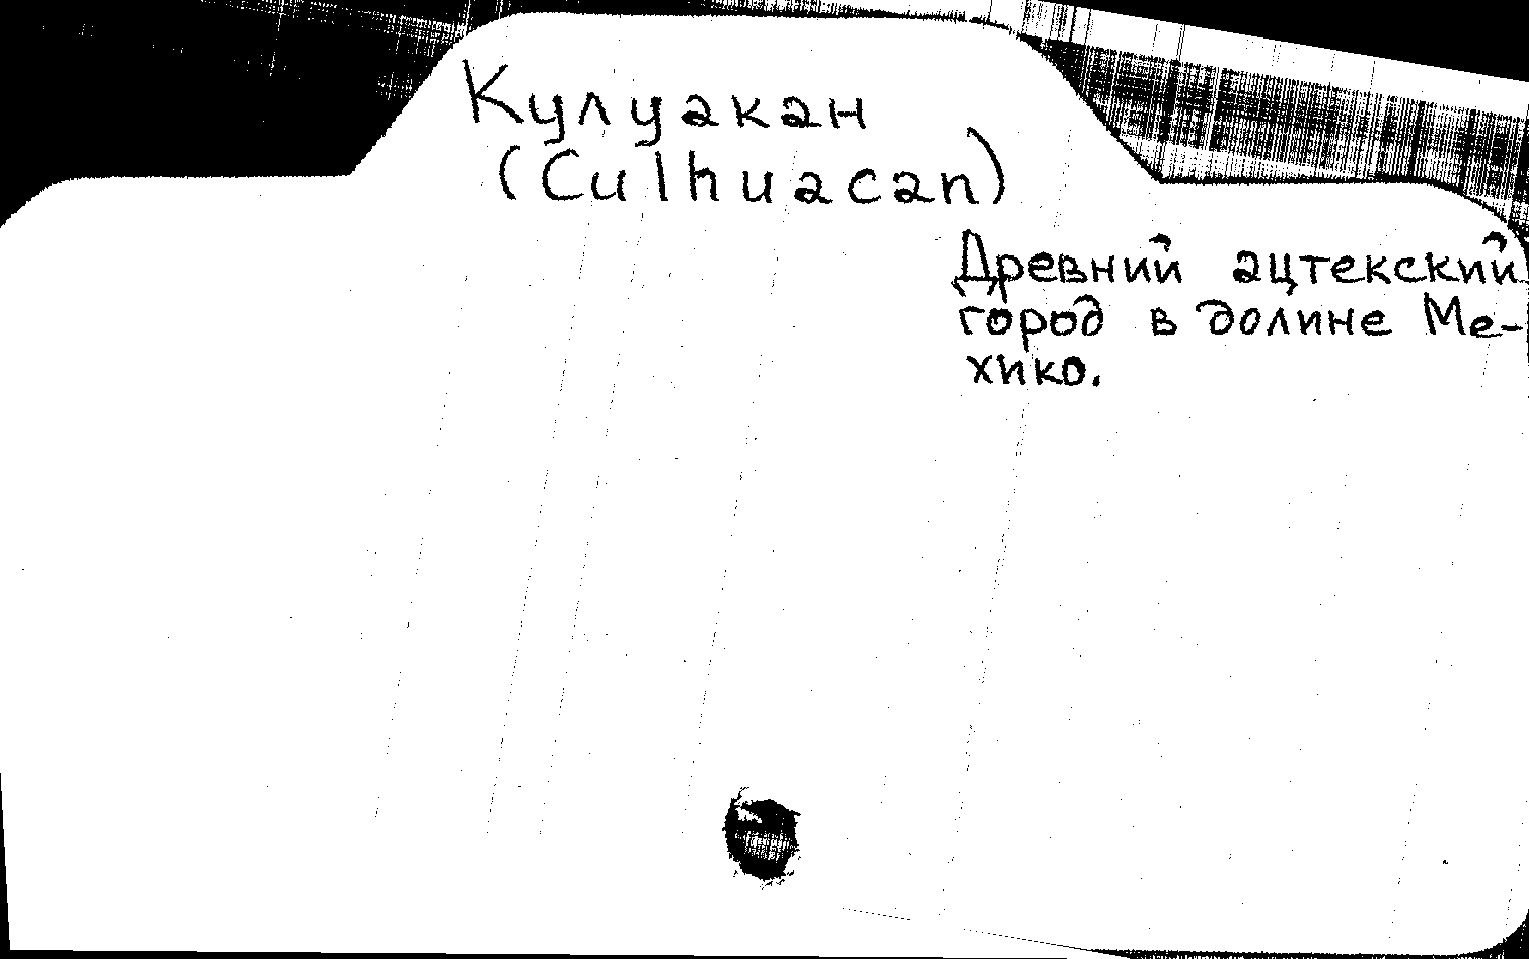 Кулуакан
(Culhuacan)
Древний ацтекский
город в долине Ме-
хико.